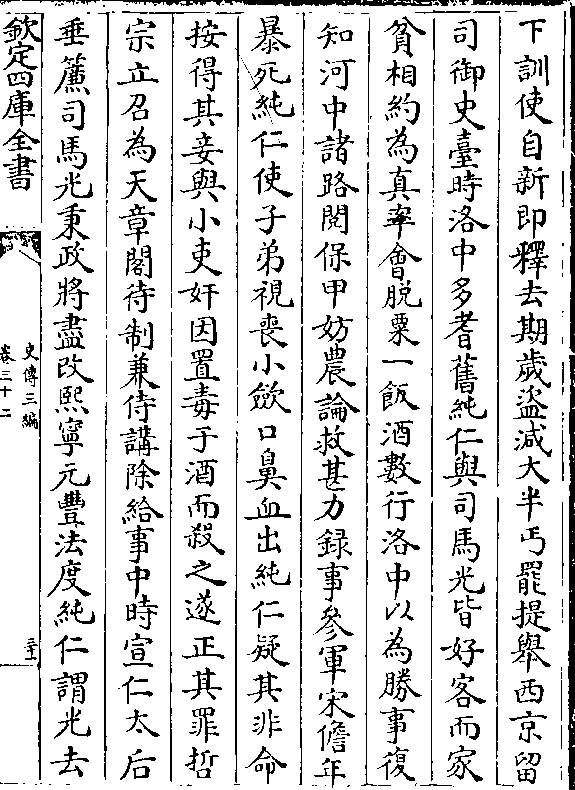 下訓使自新即釋去期歲盜減大半丐罷提舉西京留
司御史臺時洛中多耆舊純仁與司馬光皆好客而家
貧相約為真率會脱粟一飯酒數行洛中以為勝事復
知河中諸路閱保甲妨農論救甚力録事參軍宋儋年
暴死純仁使子弟視喪小歛口鼻血出純仁疑其非命
按得其妾與小吏奸因置毒于酒而殺之遂正其罪哲
宗立召為天章閣待制兼侍講除給事中時宣仁太后
垂簾司馬光秉政將盡改熙寧元豐法度純仁謂光去
欽定四庫全書
史傳三編
卷三十二